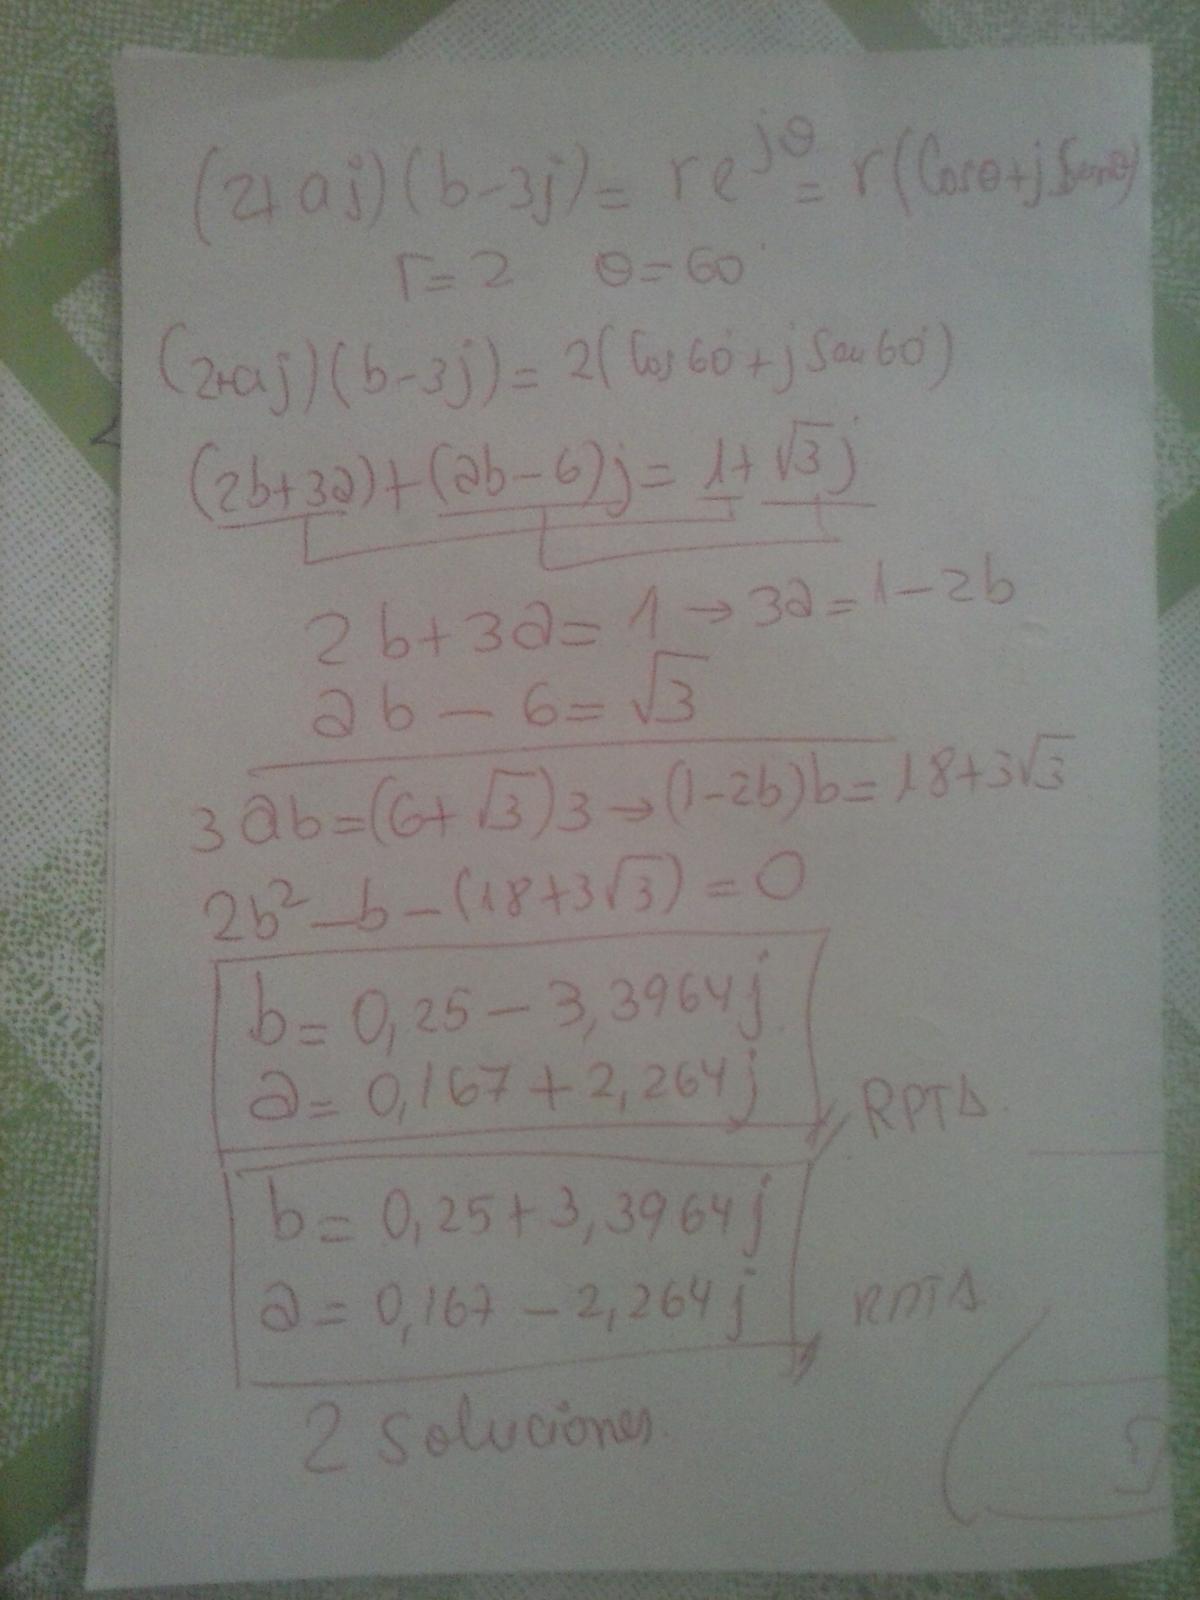 (2+aj)(b-3j)= re^jθ = r(Cosθ+j Senθ)
r=2 θ=60°
(2+aj)(b-3j)= 2(Cos60°+j Sen60°)
(2b+3a)+(ab-6)j= 1+√3j
2b+3a= 1 → 3a= 1-2b
ab - 6= √3
3ab=(6+√3)3 → (1-2b)b= 18+3√3
2b²-b-(18+3√3) = 0
b= 0,25 - 3,3964j
a= 0,167 + 2,264j
RPTA
b= 0,25+3,3964j
a= 0,167 - 2,264j
RPTA
2 soluciones